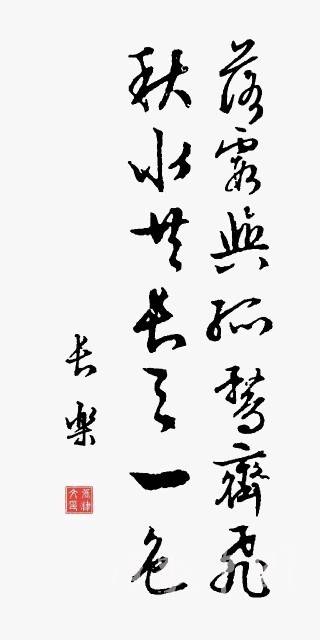 落霞與孤鶩齊飛
秋水共長天一色
長樂